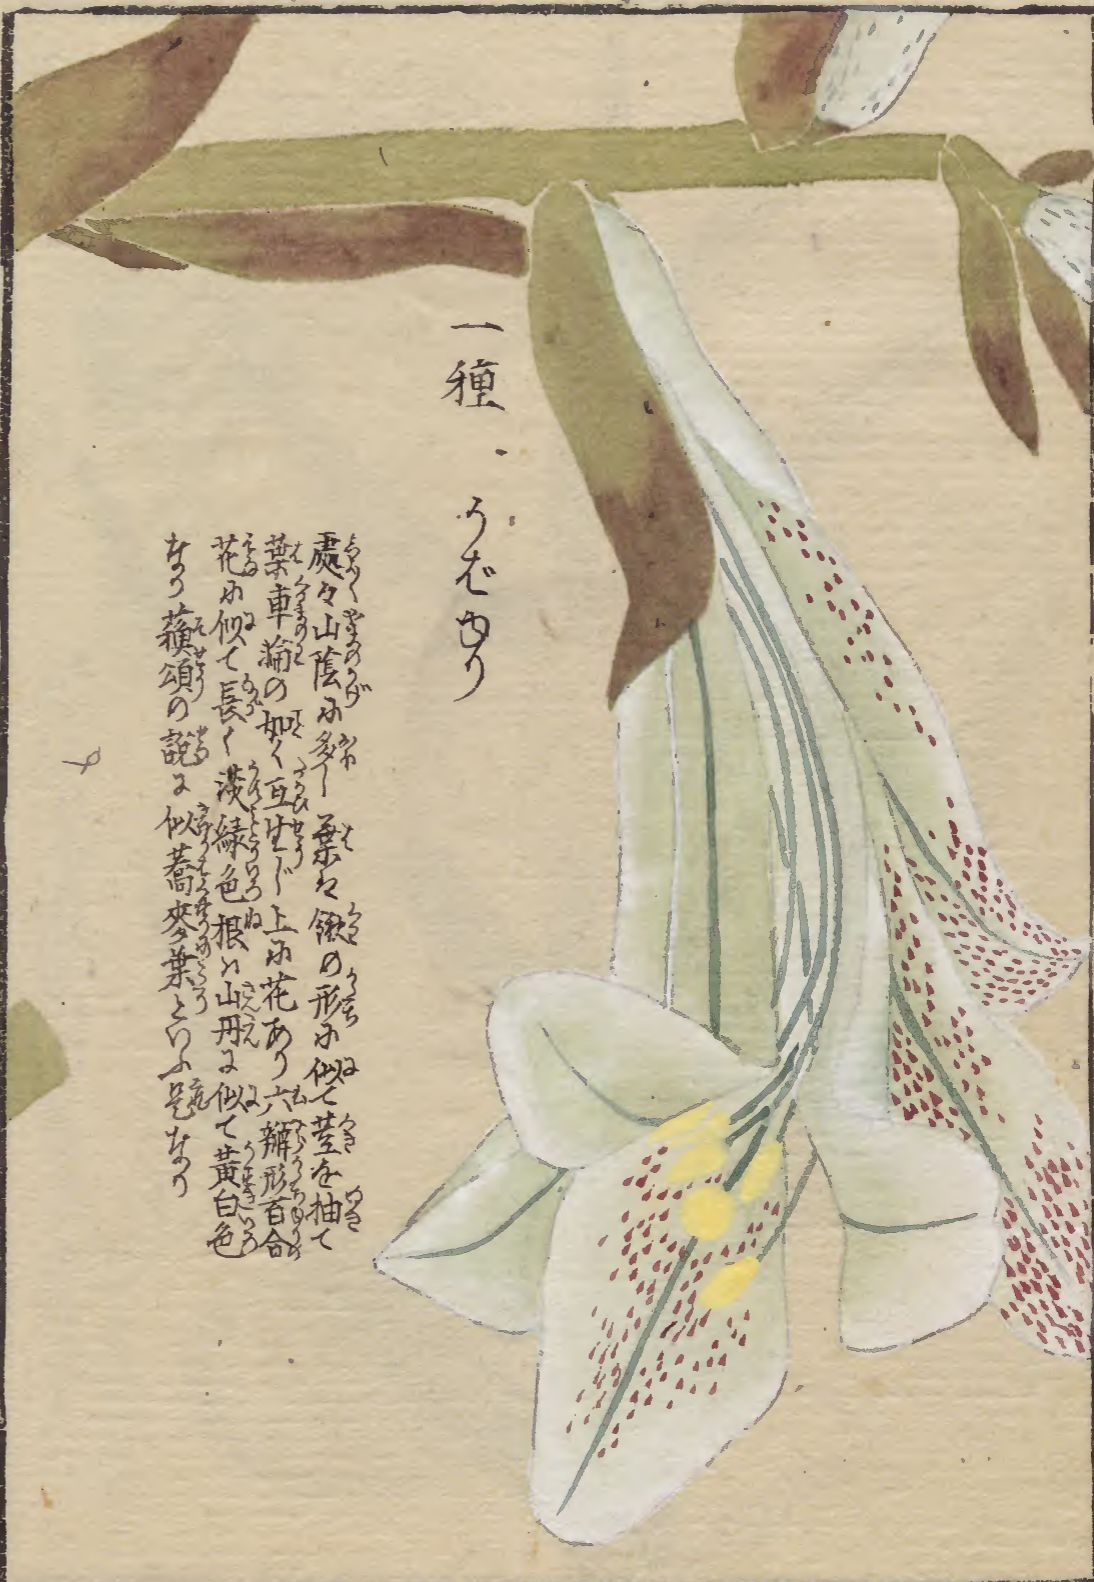 一種 うばゆり
處々山陰に多し葉は鍬の形に似て莖を抽て
葉車輪の如く互生じ上に花あり六瓣形百合
花に似て長く淡緑色根は山丹に似て黄白色
なり蘓頌の説に似蕎麥葉といふ是なり